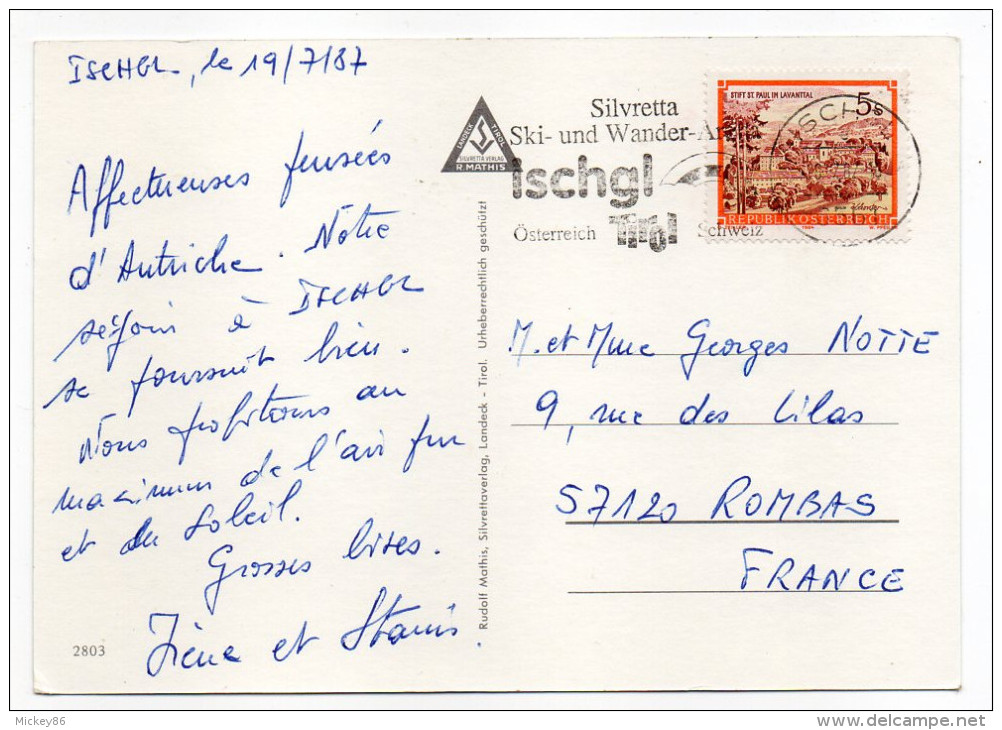 ISCHGL, le 19/7/87
Affectueuses pensées
d'Autriche. Notre
séjour à ISCHGL
se poursuit bien.
Nous profitons au
maximum de l'air pur
et du soleil.
Grosses bises.
Irène et Stanis.
2803
LANDECK TIROL
SILVRETTA VERLAG
R. MATHIS
Rudolf Mathis, Silvrettaverlag, Landeck - Tirol. Urheberrechtlich geschützt
Silvretta
Ski- und Wander-Arena
ischgl
Österreich Tirol Schweiz
STIFT ST. PAUL IM LAVANTTAL 5s
REPUBLIK ÖSTERREICH
1984
M. et Mme Georges NOTTE
9, rue des Lilas
57120 ROMBAS
FRANCE
Mickey86
delcampe.net